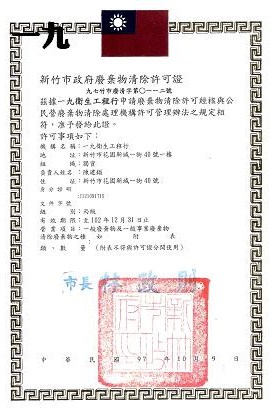 一九
新竹市政府廢棄物清除許可證
九七竹市廢清字第〇一一二號
茲據一九衛生工程行申請廢棄物清除許可經核與公
民營廢棄物清除處理機構許可管理辦法之規定相
符，准予發給此證。
許可事項如下：
機構名稱：一九衛生工程行
地址：新竹市花園新城一街40號一樓
組織：獨資
負責人姓名：陳建銘
地址：新竹市花園新城一街40號
身分證明
文件字號
級別：丙級
有效期限：至102年12月31日止
營業項目：一般廢棄物及一般事業廢棄物
清除廢棄物之種 如附表
類、數量（附表不得與許可證分開使用）
市長 林政則
中華民國97年10月9日